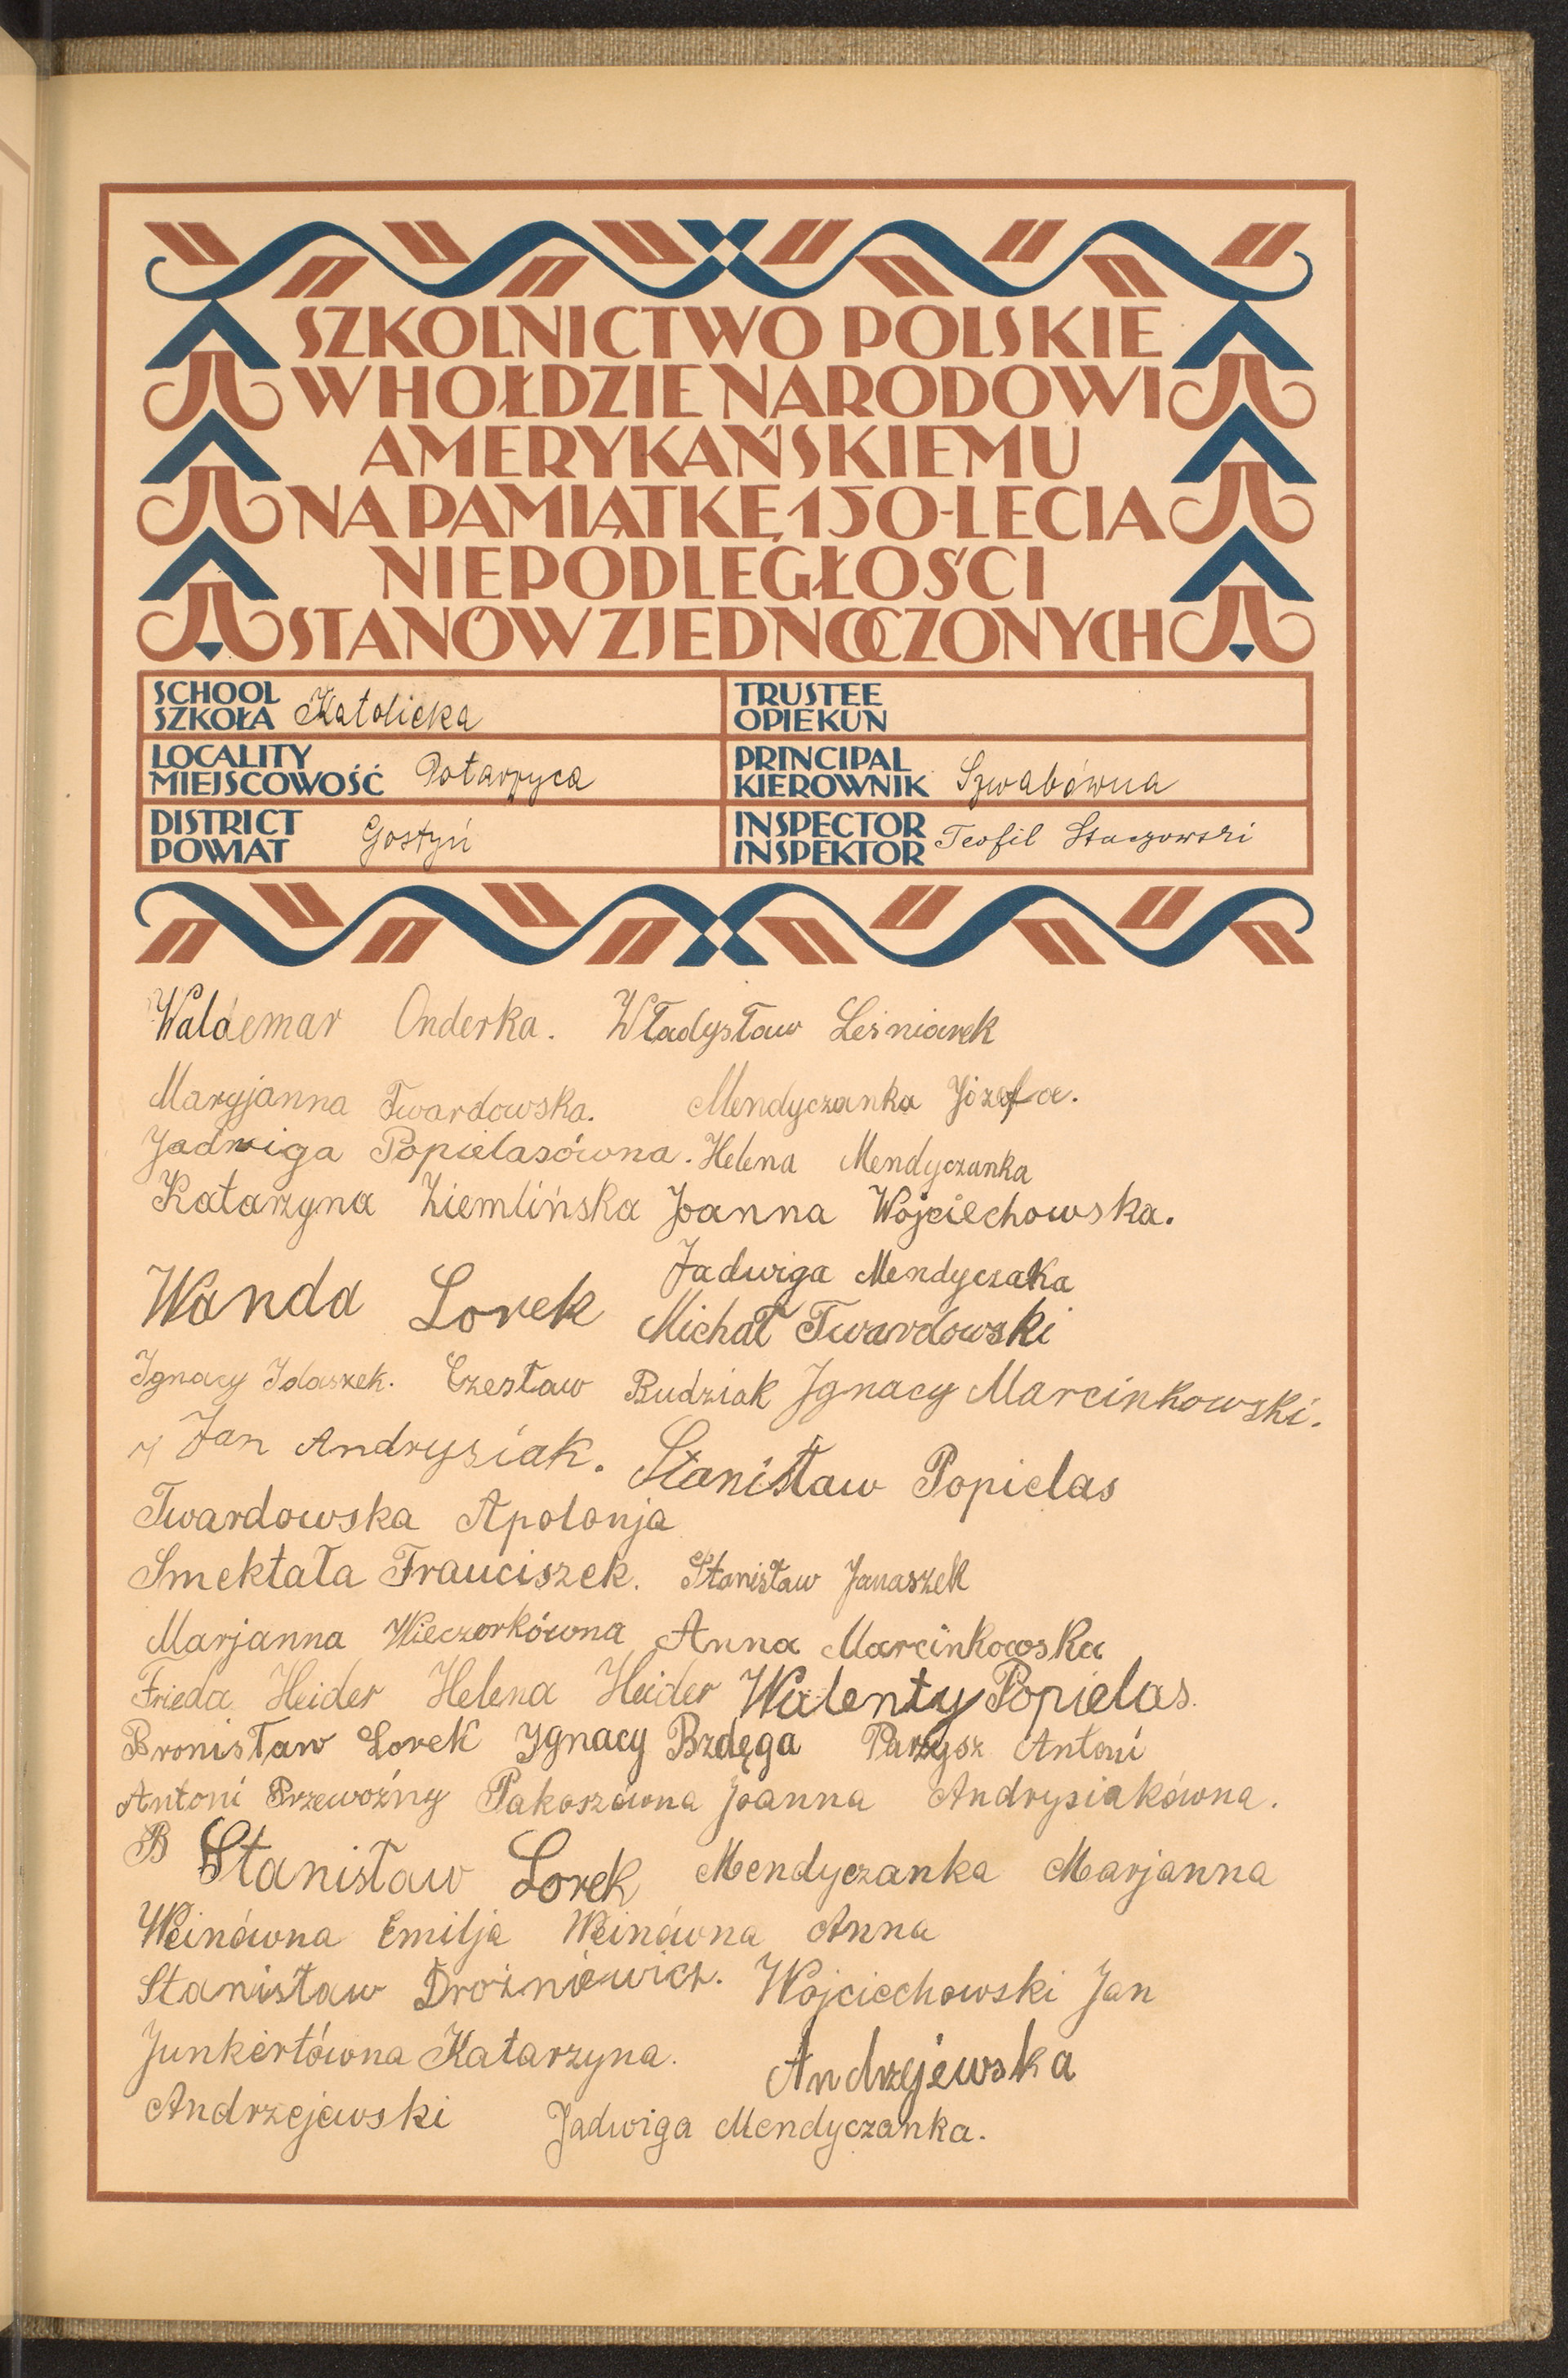 SZKOLNICTWO POLSKIE
W HOŁDZIE NARODOWI
AMERYKAŃSKIEMU
NA PAMIĄTKĘ 150-LECIA
NIEPODLEGŁOŚCI
STANÓW ZJEDNOCZONYCH
SCHOOL
SZKOŁA Katolicka
TRUSTEE
OPIEKUN
LOCALITY
MIEJSCOWOŚĆ Potarzyca
PRINCIPAL
KIEROWNIK Szwabówna
DISTRICT
POWIAT Gostyń
INSPECTOR
INSPEKTOR Teofil Staczowski
Waldemar Onderka. Władysław Leśniarek
Maryjanna Twardowska. Mendyczanka Józefa.
Jadwiga Popielasówna. Helena Mendyczanka
Katarzyna Ziemlińska Joanna Wojciechowska.
Jadwiga Mendyczaka
Wanda Lorek Michał Twardowski
Ignacy Idaszek. Czesław Budziak Ignacy Marcinkowski.
Jan Andrysiak. Stanisław Popielas
Twardowska Apolonja
Smektała Franciszek. Stanisław Janaszek
Marjanna Wieczorkówna Anna Marcinkowska
Frieda Heider Helena Heider Walenty Popielas.
Bronisław Lorek Ignacy Bzdęga Parzysz Antoni
Antoni Przewoźny Pakoszówna Joanna Andrysiakówna.
B Stanisław Lorek Mendyczanka Marjanna
Weinówna Emilja Weinówna Anna
Stanisław Drożniewicz. Wojciechowski Jan
Junkertówna Katarzyna. Andrzejewska
Andrzejewski Jadwiga Mendyczanka.